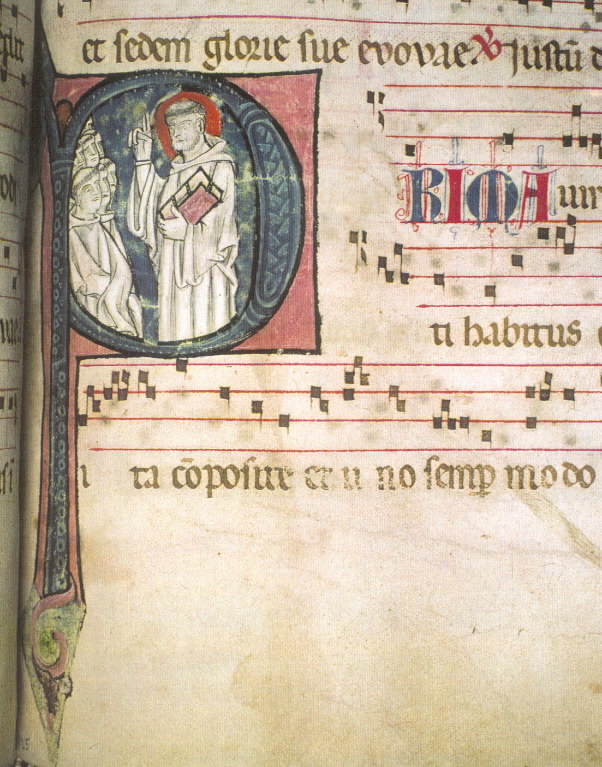 et sedem glorie sue evovae ℣ Justū
PRIMA uir
ti habitus
i ta cōposite et u no semp modo